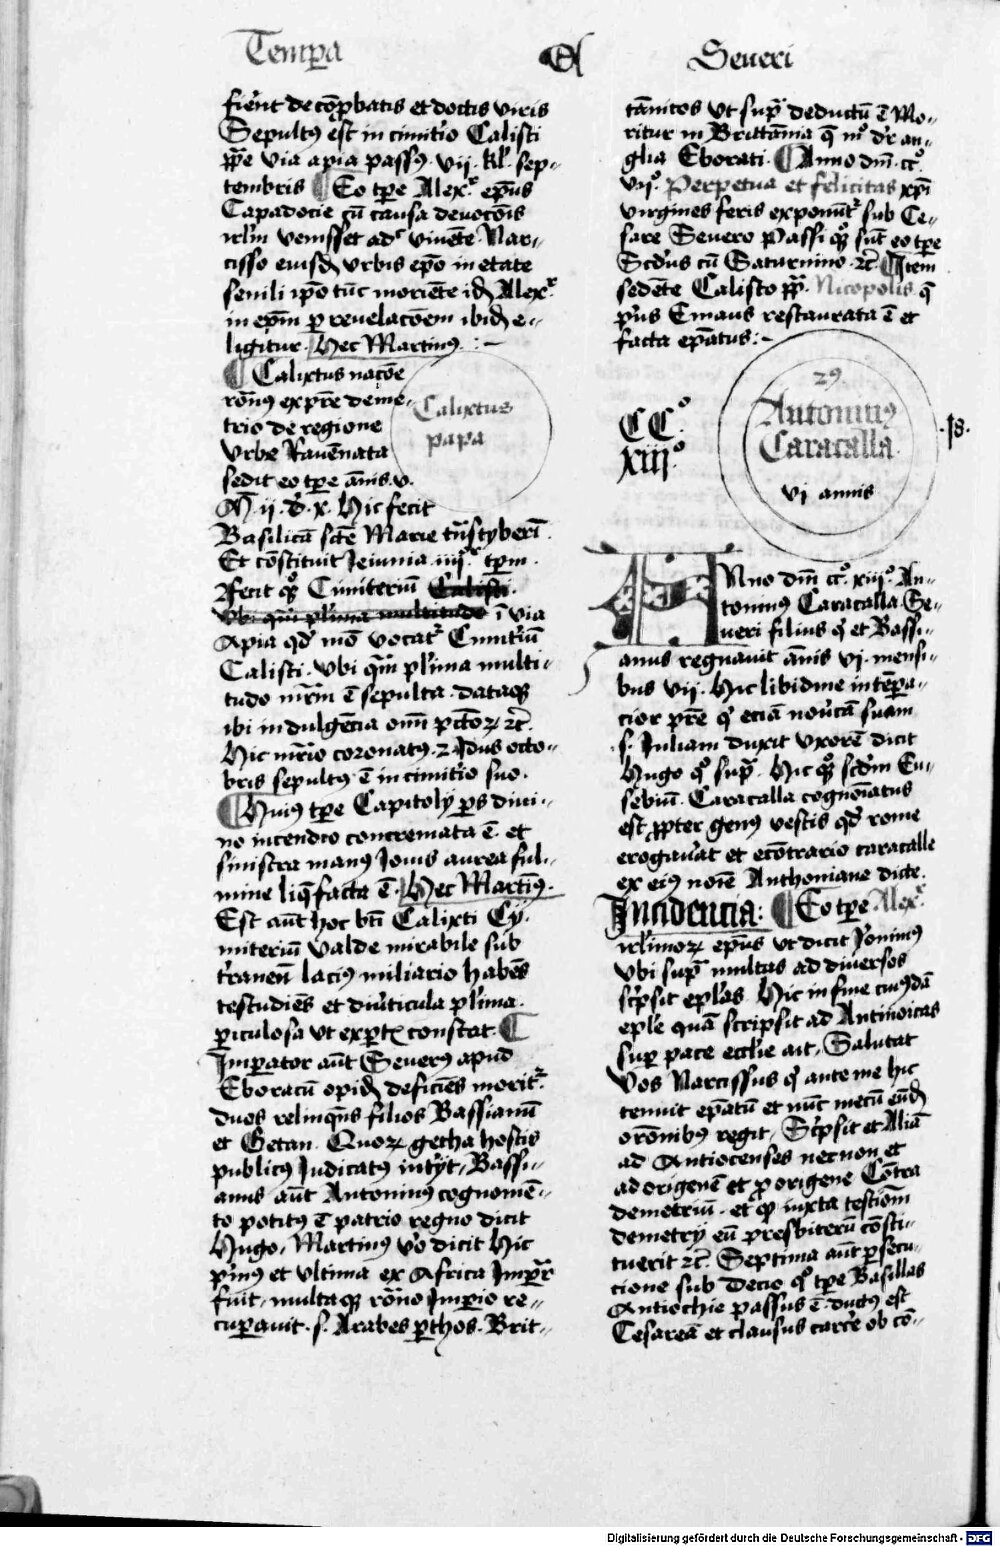 Temp̲a
Seueri
fierēt de cōp̲batis et doctis viris
Sepultꝰ est in cimit'io Calisti
ppe via apia passꝰ · vij · kl' sep-
tembris ¶ Eo tp̲e Alexͬ ep̄us
Capadocie cū causa deuocōis
irl'm venisset adͨ viuēte Nar-
cisso eiusdē vrbis ep̄o in etate
senili ip̄o tūc moriēte idē Alexͬ
in ep̄m p̲ reuelacōem ibidē e-
ligitur · Hec Martinꝰ · :~
¶ Calixtus nacōe
rōnꝰ ex pr̄e deme-
trio de regione
vrbe Rauēnata
sedit eo tp̲e ānis · v ·
M̄ · ij · d̄ · x · Hic fecit
Basilicā sctē Marie trn̄styberī
Et cōstituit Jeiunia iiijͬ tp̲m ·
Fecit qꝫ Cimiteriū Calisti
vbi qm̄ plīma multitudo ī via
Apia qd' mō vocatͬ Cimit'iū
Calisti · vbi qm̄ pl'ima multi-
tudo mr̄m ē sepulta · dataqꝫ
ibi indulgēcia om̄ pctōꝝ ꝛc̄
Hic mr̄io coronatꝰ · 2 · Idus octo-
bris sepultꝰ ē in cimit'io suo ·
¶ Huiꝰ tp̲e Capitolij p̲s diui-
no incendio concremata ē · et
sinistra manꝰ Jouis aurea ful-
mine liq̄facta ē · Hec Martīꝰ ·
Est aūt hoc btī Calixti Cy-
miteriū valde mirabile sub
t'raneū laciꝰ miliario habēs
testudiēs et diu'ticula pl'ima ·
p̲iculosa vt exp̲tꝭ constat · ¶
Imperator aūt Seuerꝰ apud
Eboracū opidū deficiēs moritͬ
duos relinq̄ns filios Bassianū
et Getan · Quoꝝ getha hostis
publicꝰ Judicatꝰ int'ijt · Bassi-
anus aūt Antoninꝰ cognomē-
to potitꝰ ē patrio regno dicit
Hugo · Martinꝰ v'o dicit Hic
p'mꝰ et vltima ex Africa Imp̲r
fuit · multaqꝫ rōno Imp̲io re-
cup̲auit · s · Arabes p̲thos · Brit-
Calixtus
papa
tānicos vt supͣ deductū ē Mo-
ritur in Brittāma q̄ mͦ dr̄ an-
glia Eborati · ¶ Anno dm̄ · ccͦ
vijͦ · Perpetua et felicitas xp̄i
virgines feris exponūtͬ sub Ce-
sare Seuero Passi qꝫ sūt eo tp̲e
Scd'us cū Saturnino ꝛc̄ · ¶ Item
sedēte Calisto pp̄ · Nicopolis q̄
p'us Emaus restaurata ē et
facta ep̄atus :~
CCͦ
xiijͦ
29
Antoninꝰ
Caracalla
vi annis
· 18 ·
ANno dm̄ ccͦ xiijͦ An-
toninꝰ Caracalla · Se-
ueri filius qͥ et Bassi-
anus regnauit ānis vj · mensi-
bus vij · Hic libidine intēp̲a-
cior pr̄e qͥ eciā nou'cā suam
· s · Juliam duxit vxorē dicit
Hugo qͦ supͣ · Hic qꝫ scd'm Eu-
sebiū · Caracalla cognoīatus
est ꝓpter genꝰ vestis qd' rome
erogau'at et econtrario caracalle
ex eiꝰ noīe Anthoniane dicte ·
Incidencia : ¶ Eo tp̲e Alexͬ
irl'imoꝝ ep̄us vt dicit J'onimꝰ
vbi supͣ multas ad diuersos
sc'psit ep̄las · Hic in fine cuiꝰdā
eple quā scripsit ad Antinoicas
sup̲ pace eccl'ie ait · Salutat
vos Narcissus qͥ ante me hic
tenuit ep̄atū et nūc mecū eūdē
orōnibꝰ regit · Sc'psit et Aliā
ad Antiocenses necnon et
ad origenē et ꝓ origene Cōtra
demetriū · et qꝫ iuxta testiōm
demetrij eū presbiterū cōsti-
tuerit ꝛc̄ · Septima aūt p̲secu-
cione sub Decio qͦ tp̲e Basillas
Antiochie passus ē · ductꝰ est
Cesareā et clausus carc'e ob cō-
Digitalisierung gefördert durch die Deutsche Forschungsgemeinschaft - DFG